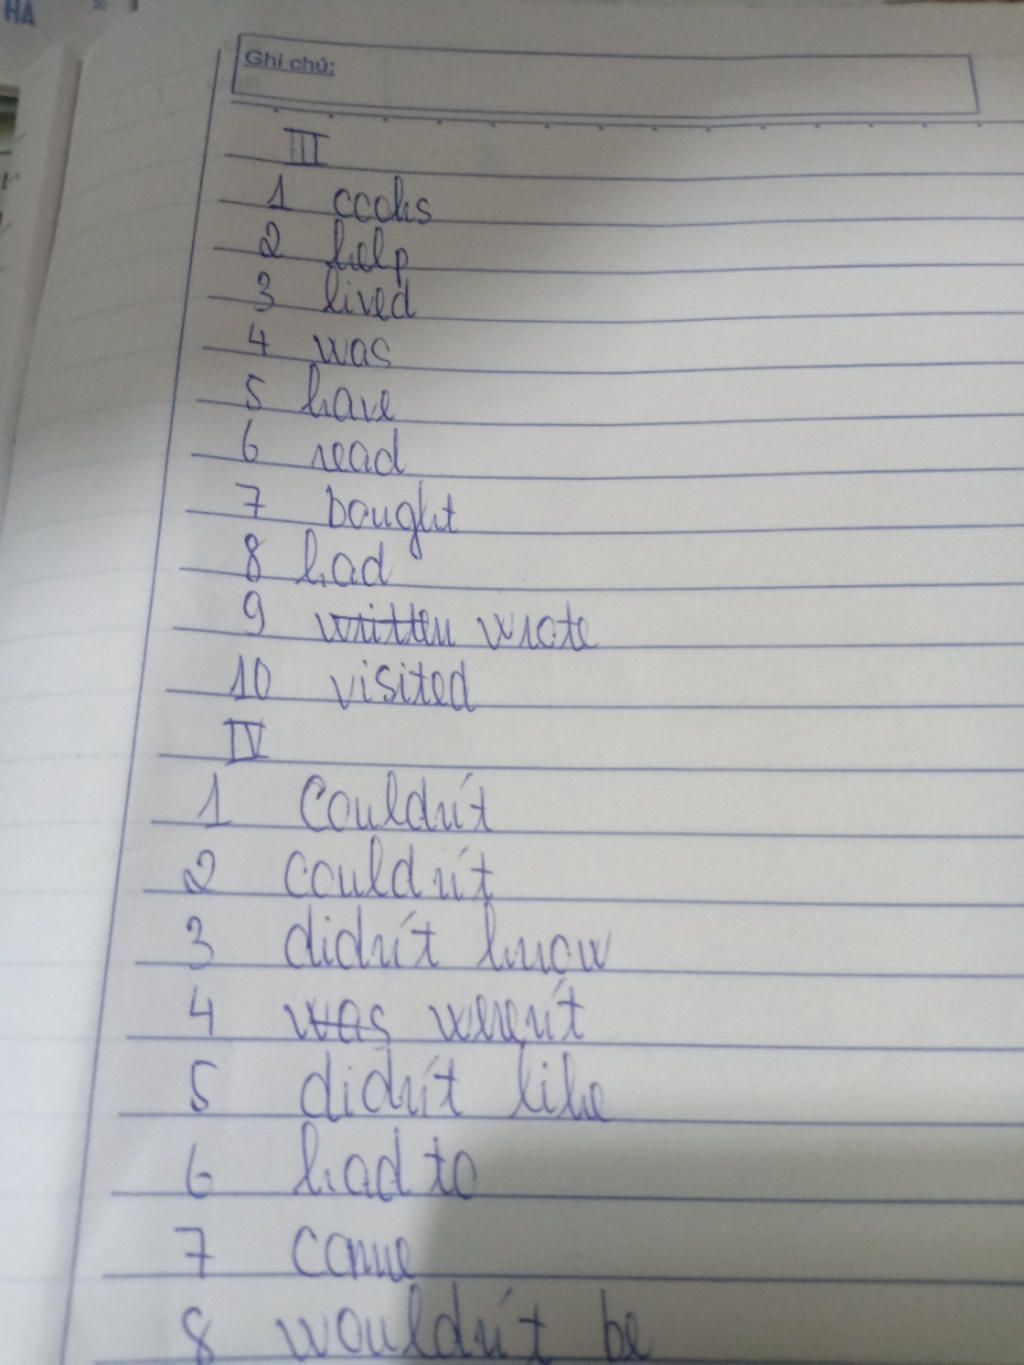 HA
Ghi chú:
III
1 cooks
2 help
3 lived
4 was
5 have
6 read
7 bought
8 had
9 written wrote
10 visited
IV
1 Couldn't
2 couldn't
3 didn't know
4 was weren't
5 didn't like
6 had to
7 came
8 wouldn't be